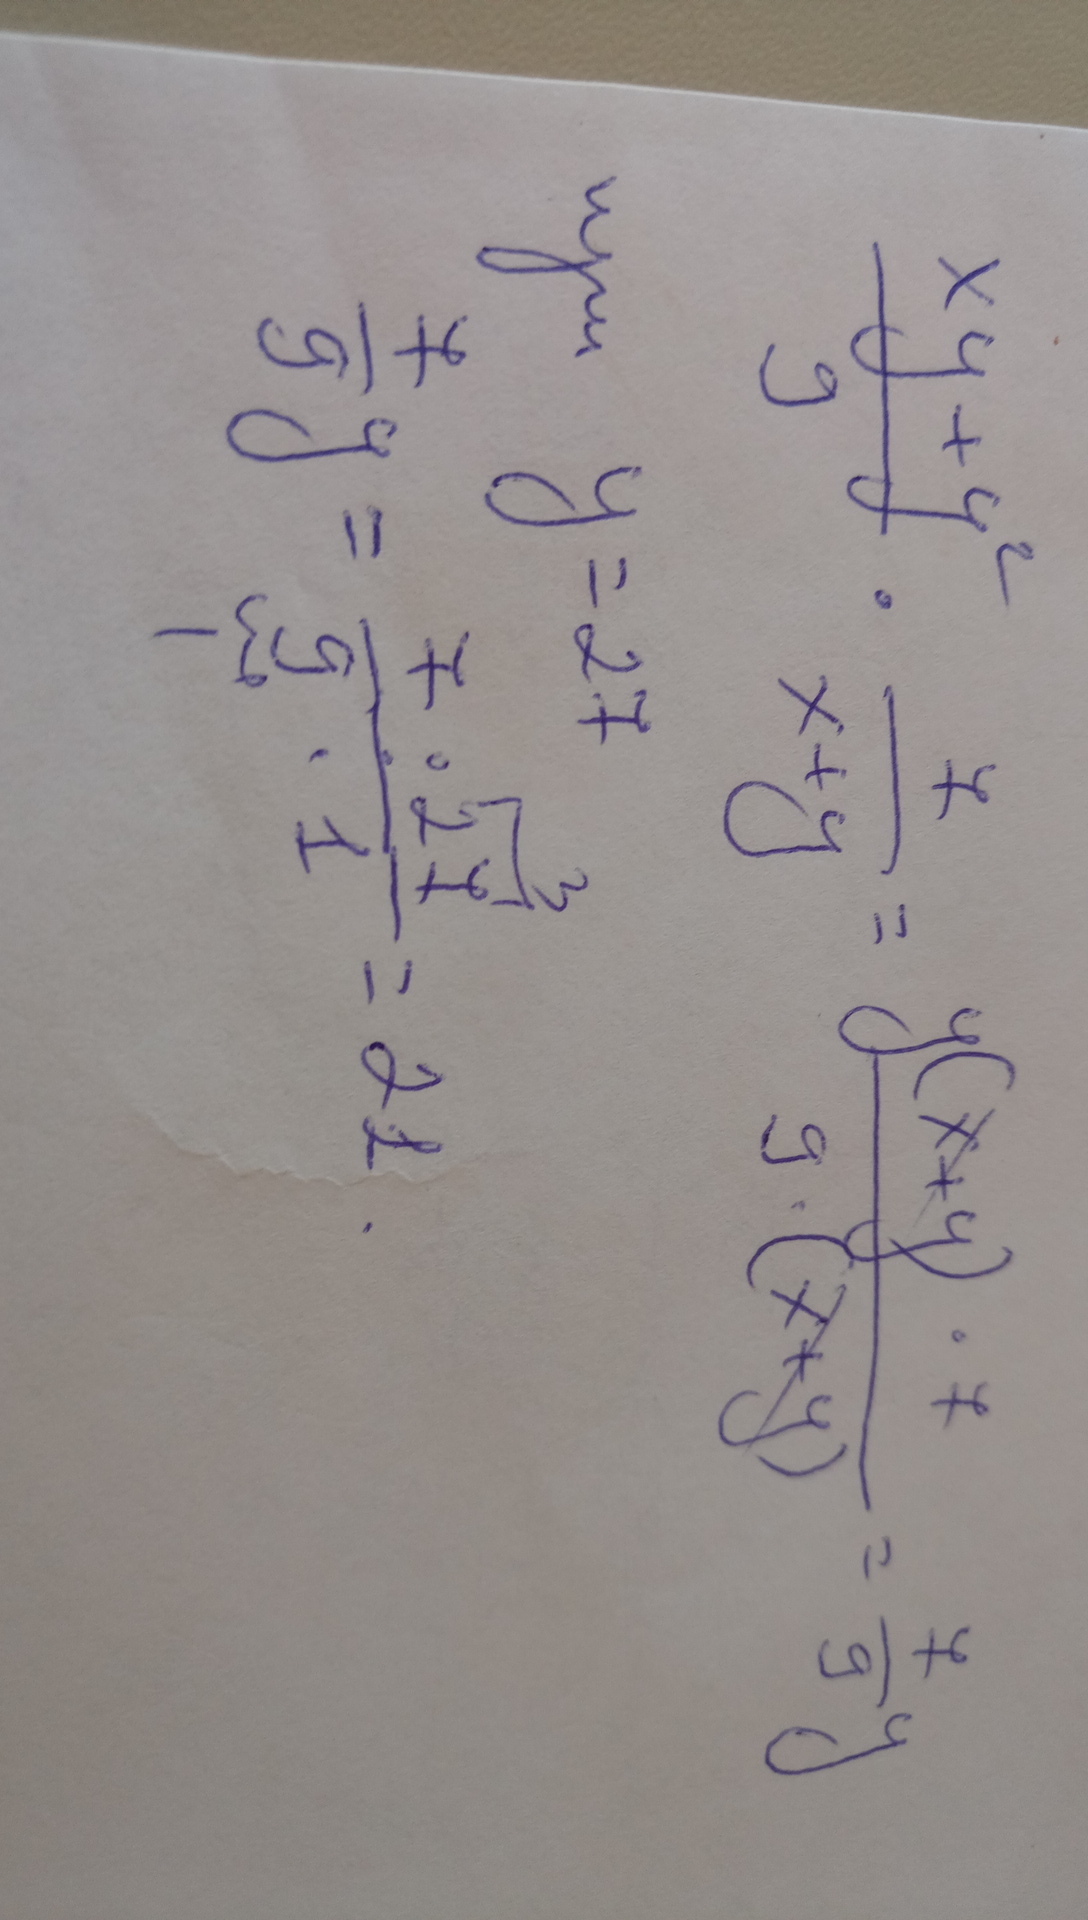 (xy + y²)/9 · 7/(x+y) = (y(x+y) · 7)/(9 · (x+y)) = 7/9 y
при y = 27
7/9 y = (7 · 27 3)/(9 1 · 1) = 21.